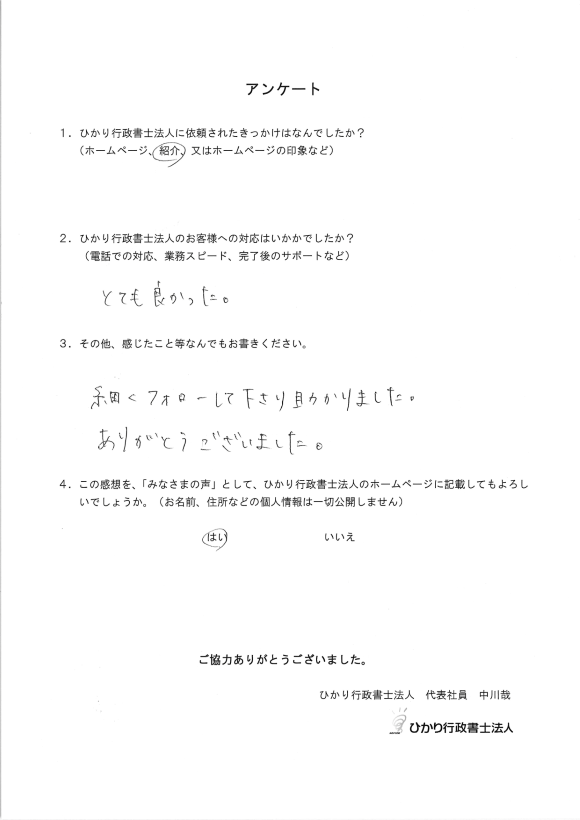 アンケート
1．ひかり行政書士法人に依頼されたきっかけはなんでしたか？
（ホームページ、紹介、又はホームページの印象など）
2．ひかり行政書士法人のお客様への対応はいかかでしたか？
（電話での対応、業務スピード、完了後のサポートなど）
とても良かった。
3．その他、感じたこと等なんでもお書きください。
細くフォローして下さり助かりました。
ありがとうございました。
4．この感想を、「みなさまの声」として、ひかり行政書士法人のホームページに記載してもよろし
いでしょうか。（お名前、住所などの個人情報は一切公開しません）
はい　いいえ
ご協力ありがとうございました。
ひかり行政書士法人　代表社員　中川哉
ひかり行政書士法人